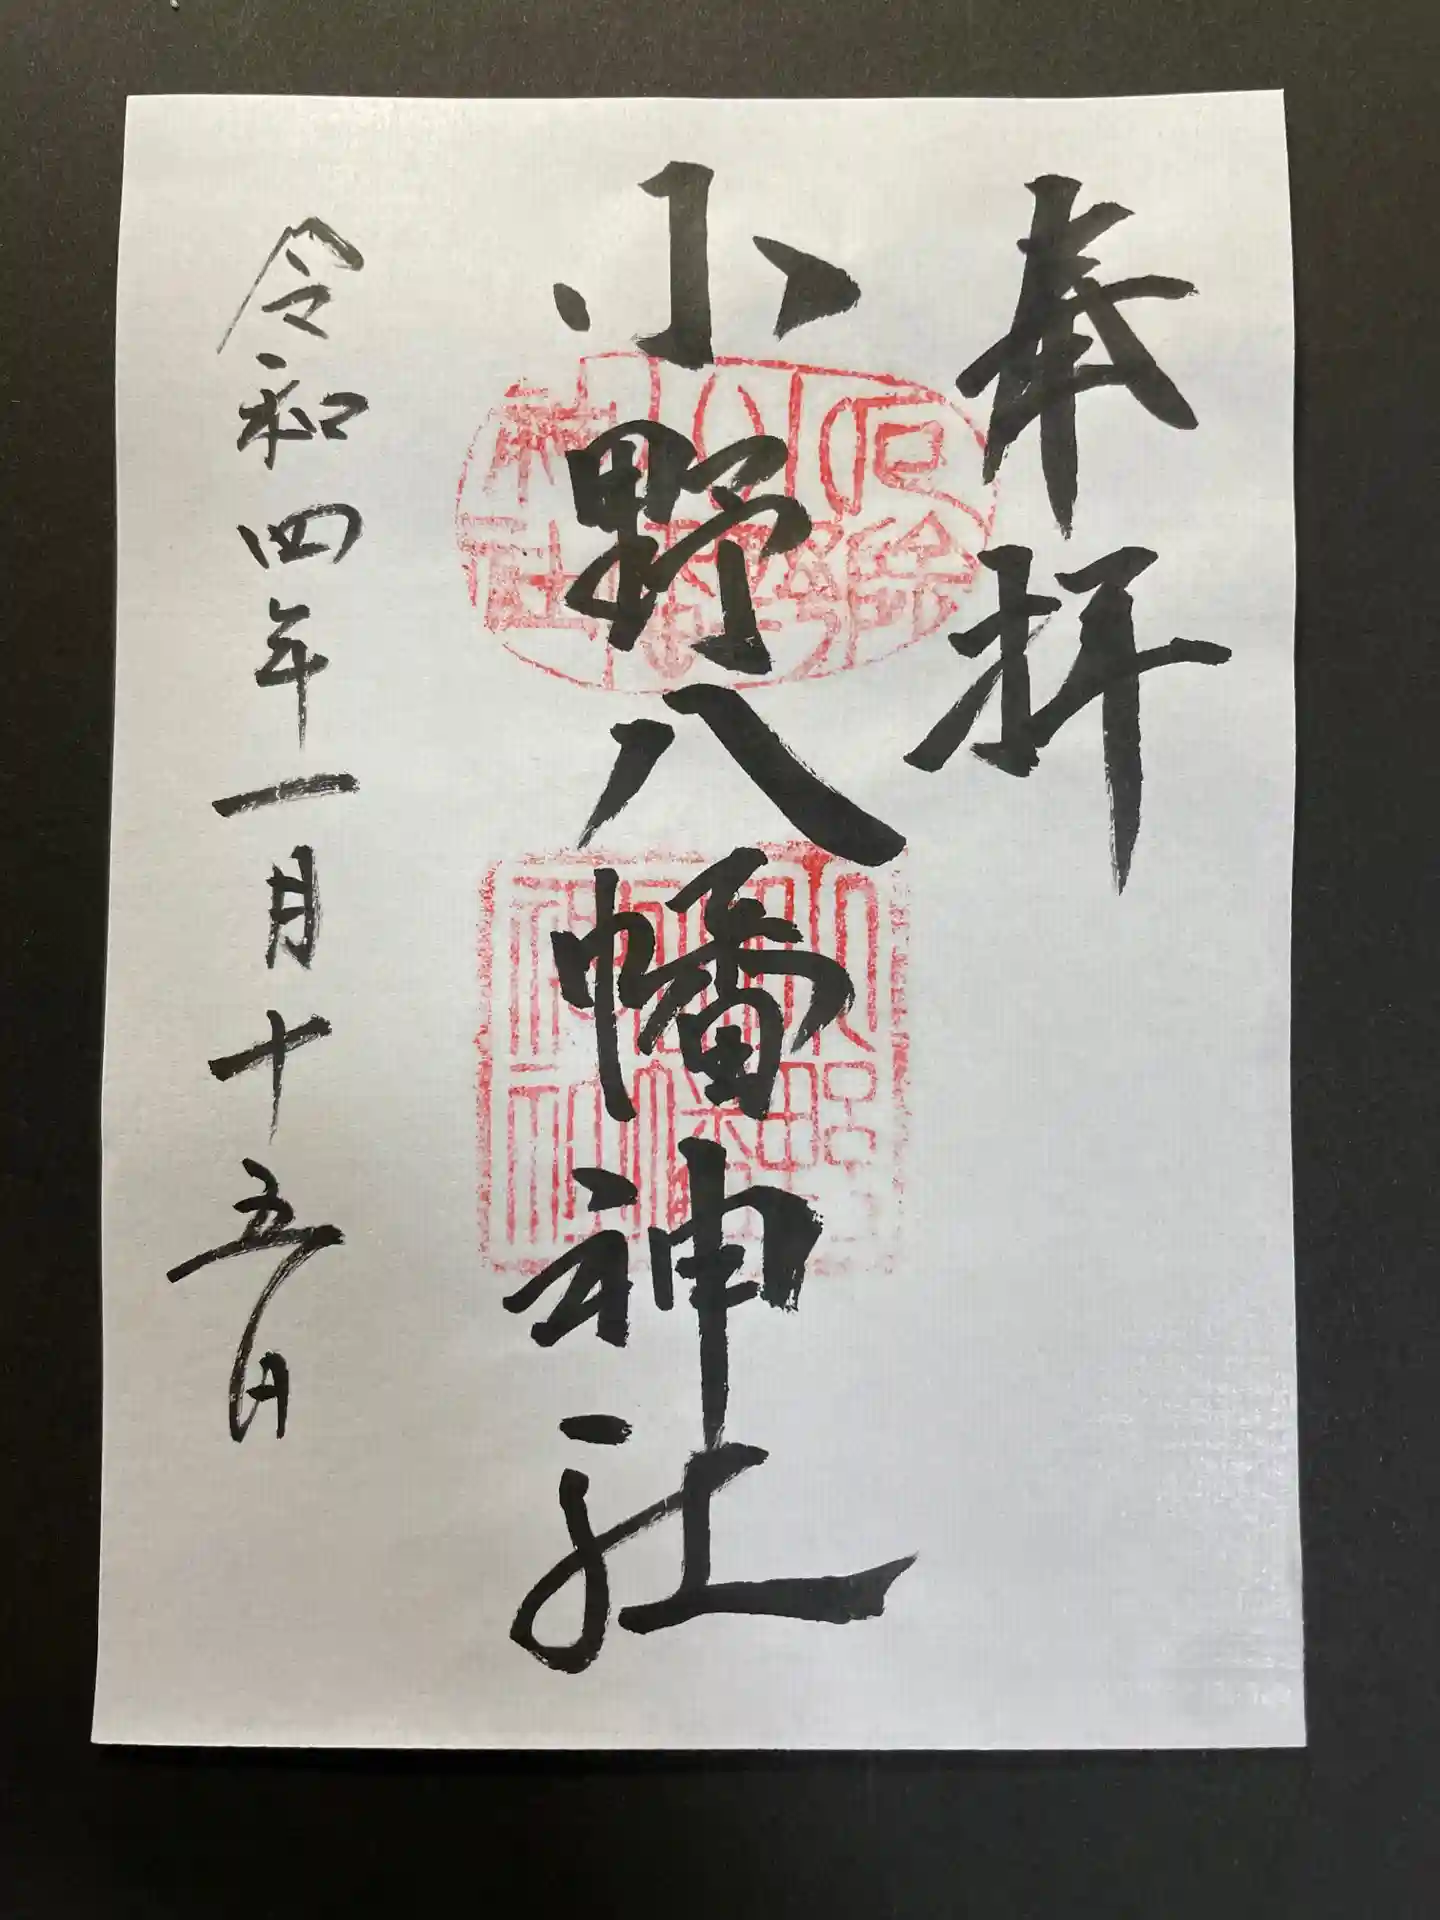 奉拝
小野八幡神社
令和四年一月十五日